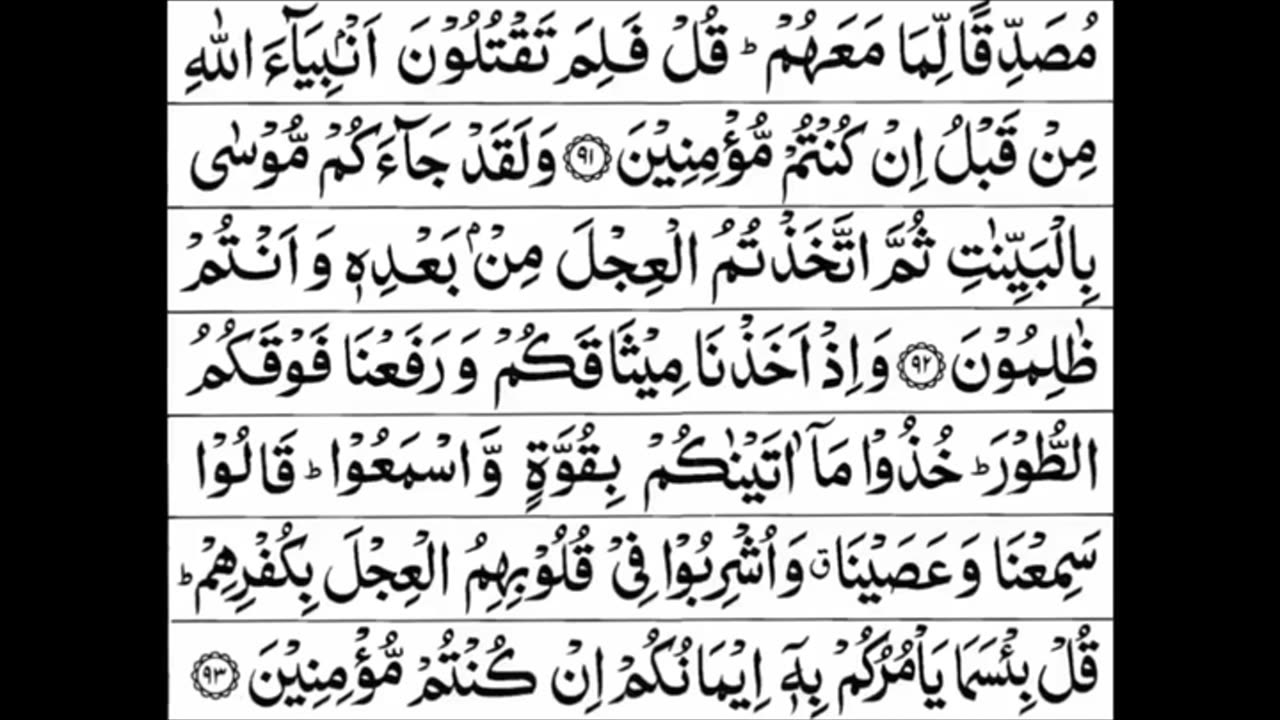 مُصَدِّقًا لِّمَا مَعَهُمْ ؕ قُلْ فَلِمَ تَقْتُلُوْنَ اَنْۢبِيَآءَ اللّٰهِ
مِنْ قَبْلُ اِنْ كُنْتُمْ مُّؤْمِنِيْنَ ۹۱ وَلَقَدْ جَآءَكُمْ مُّوْسٰى
بِالْبَيِّنٰتِ ثُمَّ اتَّخَذْتُمُ الْعِجْلَ مِنْۢ بَعْدِهٖ وَاَنْتُمْ
ظٰلِمُوْنَ ۹۲ وَاِذْ اَخَذْنَا مِيْثَاقَكُمْ وَرَفَعْنَا فَوْقَكُمُ
الطُّوْرَ ؕ خُذُوْا مَآ اٰتَيْنٰكُمْ بِقُوَّةٍ وَّاسْمَعُوْا ؕ قَالُوْا
سَمِعْنَا وَعَصَيْنَا ۗ وَاُشْرِبُوْا فِيْ قُلُوْبِهِمُ الْعِجْلَ بِكُفْرِهِمْ ؕ
قُلْ بِئْسَمَا يَاْمُرُكُمْ بِهٖٓ اِيْمَانُكُمْ اِنْ كُنْتُمْ مُّؤْمِنِيْنَ ۹۳